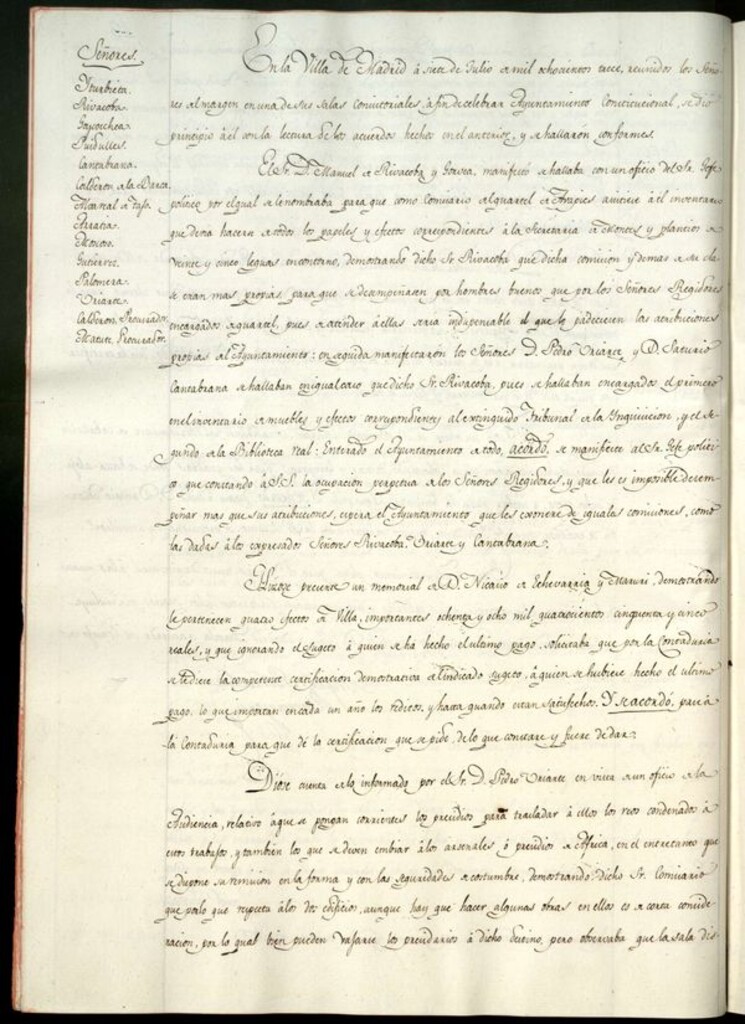 Señores.
Yturbieta.
Rivacoba.
Goycochea.
Puidulles.
Cantabrana.
Calderon de la Barca.
Marcal de Tafa.
Arratia.
Monoso.
Gutierrez.
Palomera.
Uriarte.
Calderon, Procurador.
Matute, Procurador.
En la Villa de Madrid á siete de Julio de mil ochocientos trece, reunidos los Seño-
res al margen en una de sus salas consistoriales, á fin de celebrar Ayuntamiento Constitucional, se dió
principio á él con la lectura de los acuerdos hechos en el anterior, y se hallaron conformes.
El Sr. D. Manuel de Rivacoba y Gorvea, manifestó se hallaba con un oficio del Sr. Gefe
político por el qual se le nombraba para que como Comisario del quartel de Afligidos asistiese á el inventario
que devia hacerse de todos los papeles y efectos correspondientes á la Secretaria de Montes y plantios de
veinte y cinco leguas en contorno, demostrando dicho Sr. Rivacoba que dicha comision y demas de su cla-
se eran mas propias para que se desempeñasen por hombres buenos que por los Señores Regidores
encargados de quartel, pues de atender á ellas seria indispensable el que se padeciesen las atribuciones
propias del Ayuntamiento: en seguida manifestaron los Señores D. Pedro Uriarte y D. Saturio
Cantabrana se hallaban en igual caso que dicho Sr. Rivacoba, pues se hallaban encargados el primero
en el inventario de muebles y efectos correspondientes al extinguido Tribunal de la Inquisicion, y el se-
gundo de la Biblioteca real: Enterado el Ayuntamiento de todo, acordó, se manifieste al Sr. Gefe politi-
co que constando á S.S. la ocupacion perpetua de los Señores Regidores, y que les es imposible desem-
peñar mas que sus atribuciones, espera el Ayuntamiento que les exonere de iguales comisiones, como
las dadas á los expresados Señores Rivacoba, Uriarte y Cantabrana.
Hizose presente un memorial de D. Nicasio de Echevarria y Maruri, demostrando
le pertenecen quatro efectos de Villa, importantes ochenta y ocho mil quatrocientos cinquenta y cinco
reales, y que ignorando el sugeto á quien se ha hecho el ultimo pago, solicitaba que por la Contaduria
se le diese la competente certificacion demostrativa del indicado sugeto, á quien se hubiese hecho el ultimo
pago, lo que importan en cada un año los reditos, y hasta quando estan satisfechos. Y se acordó, pase á
la Contaduria para que dé la certificacion que se pide, de lo que constare y fuere de dar.
Dióse cuenta de lo informado por el Sr. D. Pedro Uriarte en vista de un oficio de la
Audiencia, relativo á que se pongan corrientes los presidios para trasladar á ellos los reos condenados á
estos trabajos, y tambien los que se deven embiar á los arsenales ó presidios de Africa, en el entretanto que
se dispone su remision en la forma y con las seguridades de costumbre, demostrando dicho Sr. Comisario
que por lo que respecta á los dos edificios, aunque hay que hacer algunas obras en ellos es de corta conside-
racion, por lo qual bien pueden pasarse los presidarios á dicho destino, pero observaba que la sala dis-